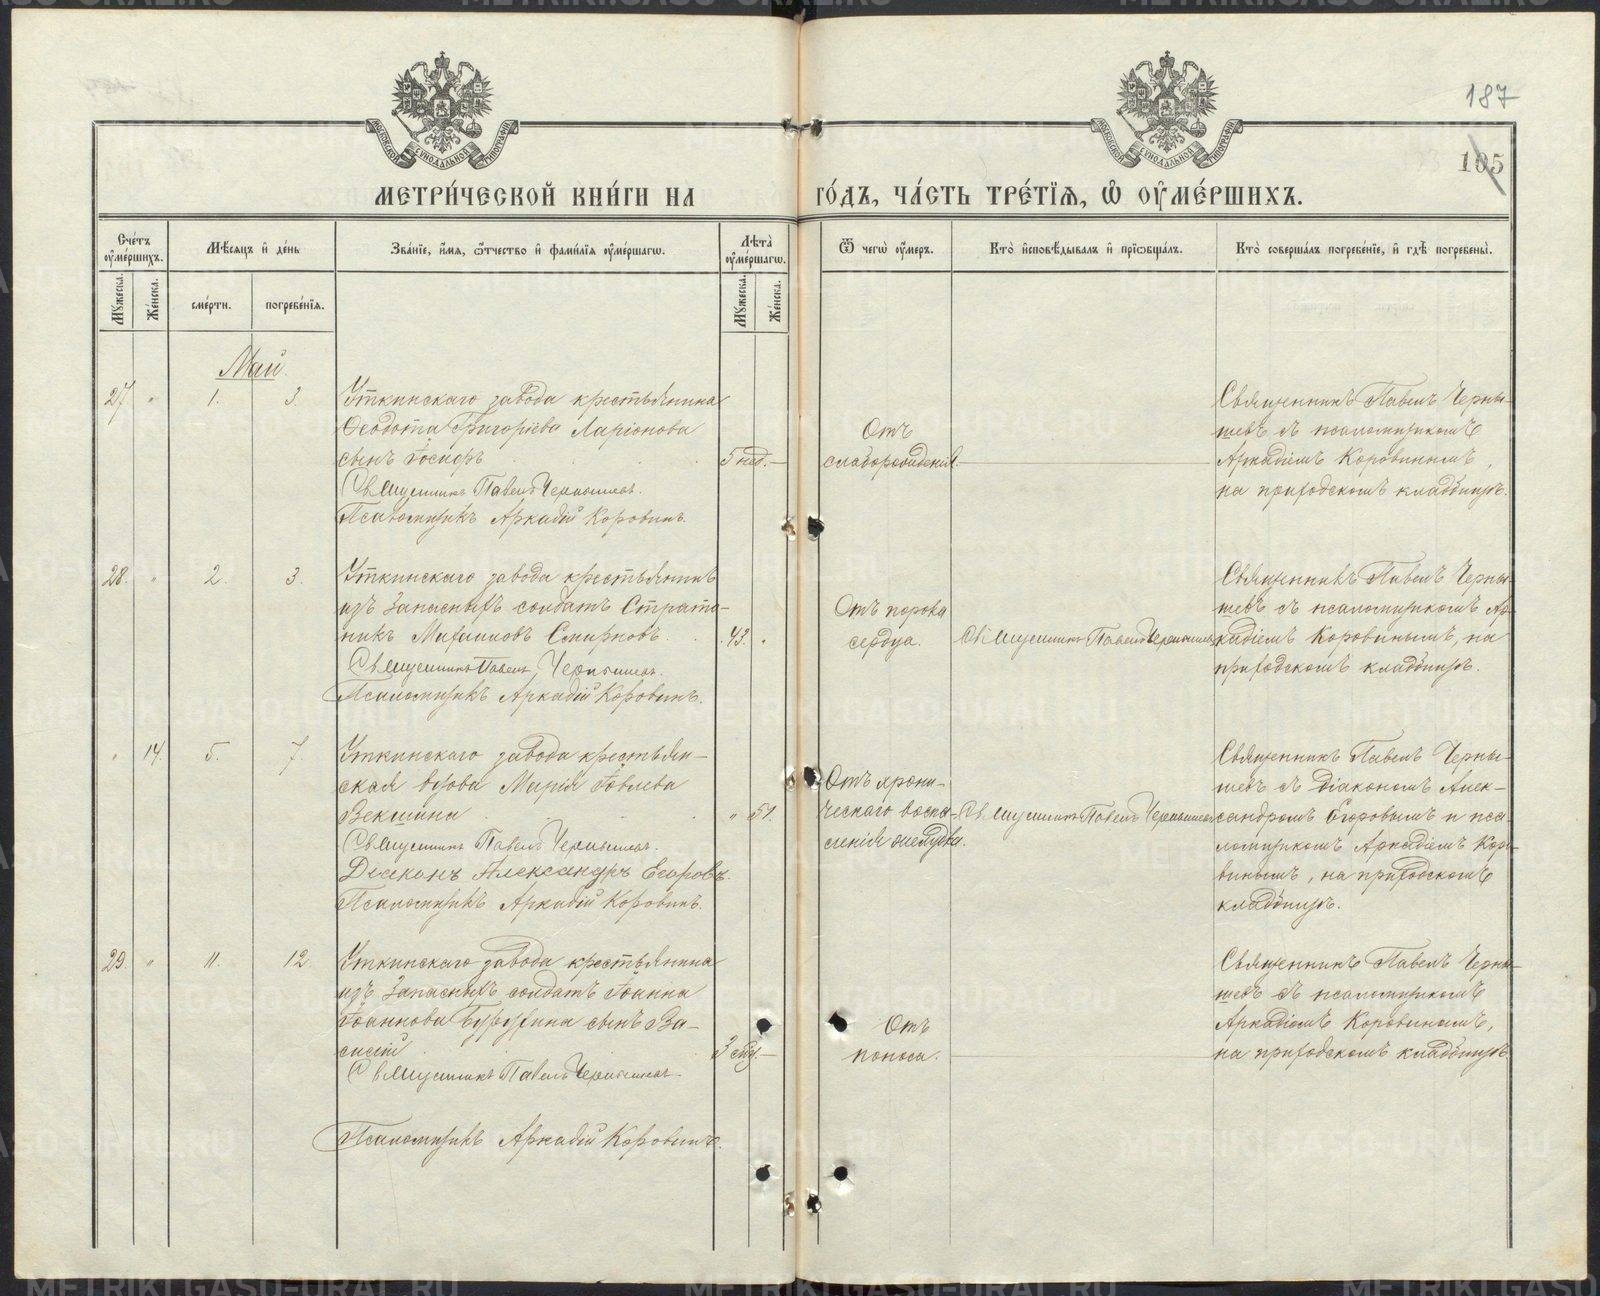 187
105
МЕТРИ́ЧЕСКОЙ КНИ́ГИ НА ГО́ДЪ, ЧА́СТЬ ТРЕ́ТЇЯ, Ѡ҆ ОУ҆МЕ́РШИХЪ.
Сче́тъ оу҆ме́ршихъ.
Мꙋ́жеска.
Же́нска.
Мѣ́сяцъ и҆ де́нь
сме́рти.
погребе́нїя.
Зва́нїе, и҆́мя, ѻ҆́тчество и҆ фами́лїя оу҆ме́ршагѡ.
Лѣта̀ оу҆ме́ршагѡ.
Мꙋ́жеска.
Же́нска.
Ѿ чегѡ̀ оу҆́меръ.
Кто̀ и҆сповѣ́дывалъ и҆ прїѡбща́лъ.
Кто̀ соверша́лъ погребе́нїе, и҆ гдѣ̀ погребены̀.
Май.
27 " 1. 3.
Уткинскаго завода крестьянина
Ѳеодота Григоріева Ларіонова
сынъ Іосифъ
Священникъ Павелъ Чернышевъ.
Псаломщикъ Аркадій Коровинъ.
5 нед. —
Отъ
слаборожденія.
Священникъ Павелъ Черны-
шевъ съ псаломщикомъ
Аркадіемъ Коровинымъ,
на приходскомъ кладбищѣ.
28. " 2. 3.
Уткинскаго завода крестьянинъ
изъ запасныхъ солдатъ Страто-
никъ Смирновъ.
Священникъ Павелъ Чернышевъ.
Псаломщикъ Аркадій Коровинъ.
43. "
Отъ порока
сердца.
Священникъ Павелъ Чернышевъ
Священникъ Павелъ Черны-
шевъ съ псаломщикомъ Ар-
кадіемъ Коровинымъ, на
приходскомъ кладбищѣ.
" 14. 5. 7.
Уткинскаго завода крестьян-
ская вдова Марія Іовлева
Векшина
Священникъ Павелъ Чернышевъ.
Діаконъ Александръ Егоровъ.
Псаломщикъ Аркадій Коровинъ.
" 51.
Отъ хрони-
ческаго воспа-
ленія желудка.
Священникъ Павелъ Чернышевъ
Священникъ Павелъ Черны-
шевъ съ діакономъ Алек-
сандромъ Егоровымъ и пса-
ломщикомъ Аркадіемъ Коро-
винымъ, на приходскомъ
кладбищѣ.
29. " 11. 12.
Уткинскаго завода крестьянина
изъ запасныхъ солдатъ Іоанна
Іоаннова сынъ Ва-
силій
Священникъ Павелъ Чернышевъ
Псаломщикъ Аркадій Коровинъ.
—
Отъ
поноса.
Священникъ Павелъ Черны-
шевъ съ псаломщикомъ
Аркадіемъ Коровинымъ,
на приходскомъ кладбищѣ
METRIKI.GASO-URAL.RU